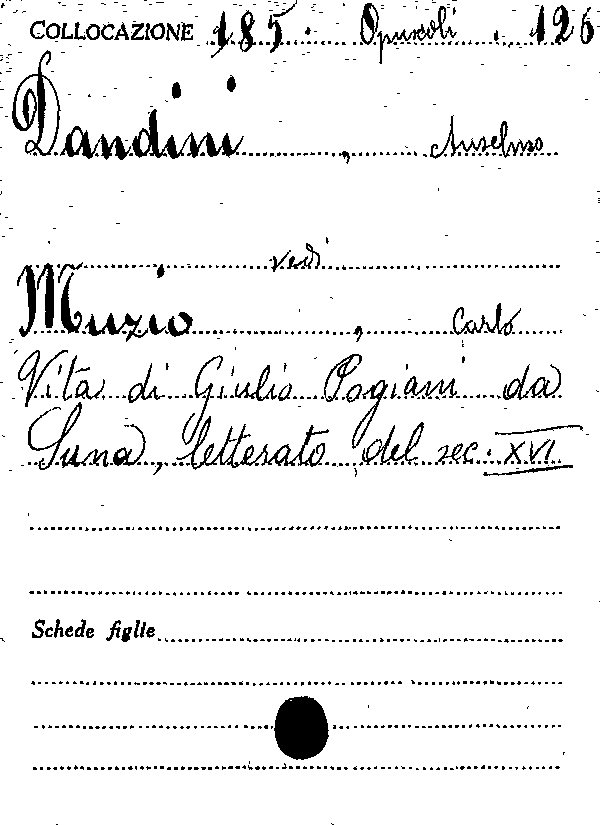 COLLOCAZIONE 185. Opuscoli. 126
Dandini, Anselmo
vedi
Muzio, Carlo
Vita di Giulio Pogiani da
Suna, letterato del sec. XVI
Schede figlie